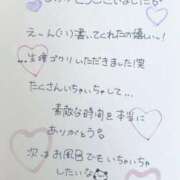 えーん(;;)書いてくれたの嬉しい〜!
生理プクリいただきました!笑
たくさんいちゃいちゃして....
素敵な時間を本当に
ありがとう。
次はお風呂でもいちゃいちゃ
したいな